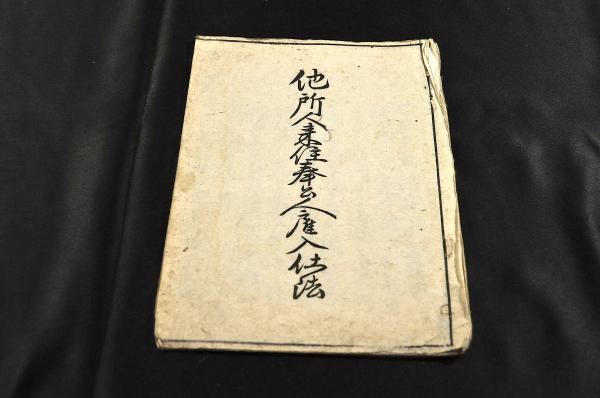 他所人来住奉公人雇入仕法